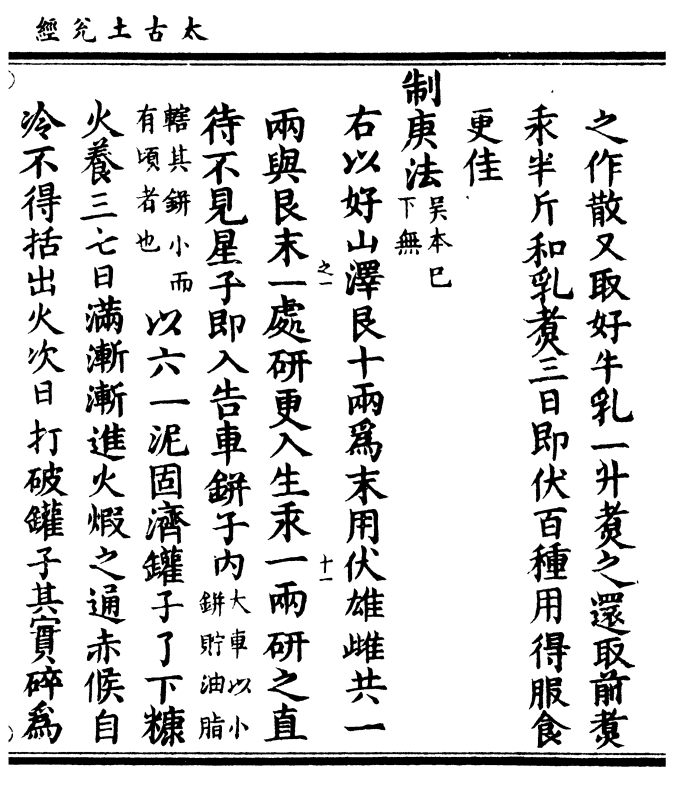 太古土兊經
之作散又取好牛乳一升煮之還取前煮
汞半斤和乳煮三日即伏百種用得服食
更佳
制庚法吳本已下無
右以好山澤艮十兩爲末用伏雄雌共一
兩與艮末一處研更入生汞一兩研之直
之一
十一
待不見星子即入告車鉼子內大車以小鉼貯油脂
轄其鉼小而有頃者也以六一泥固濟罐子了下糠
火養三七日滿漸漸進火煆之通赤候自
冷不得括出火次日打破罐子其實碎爲